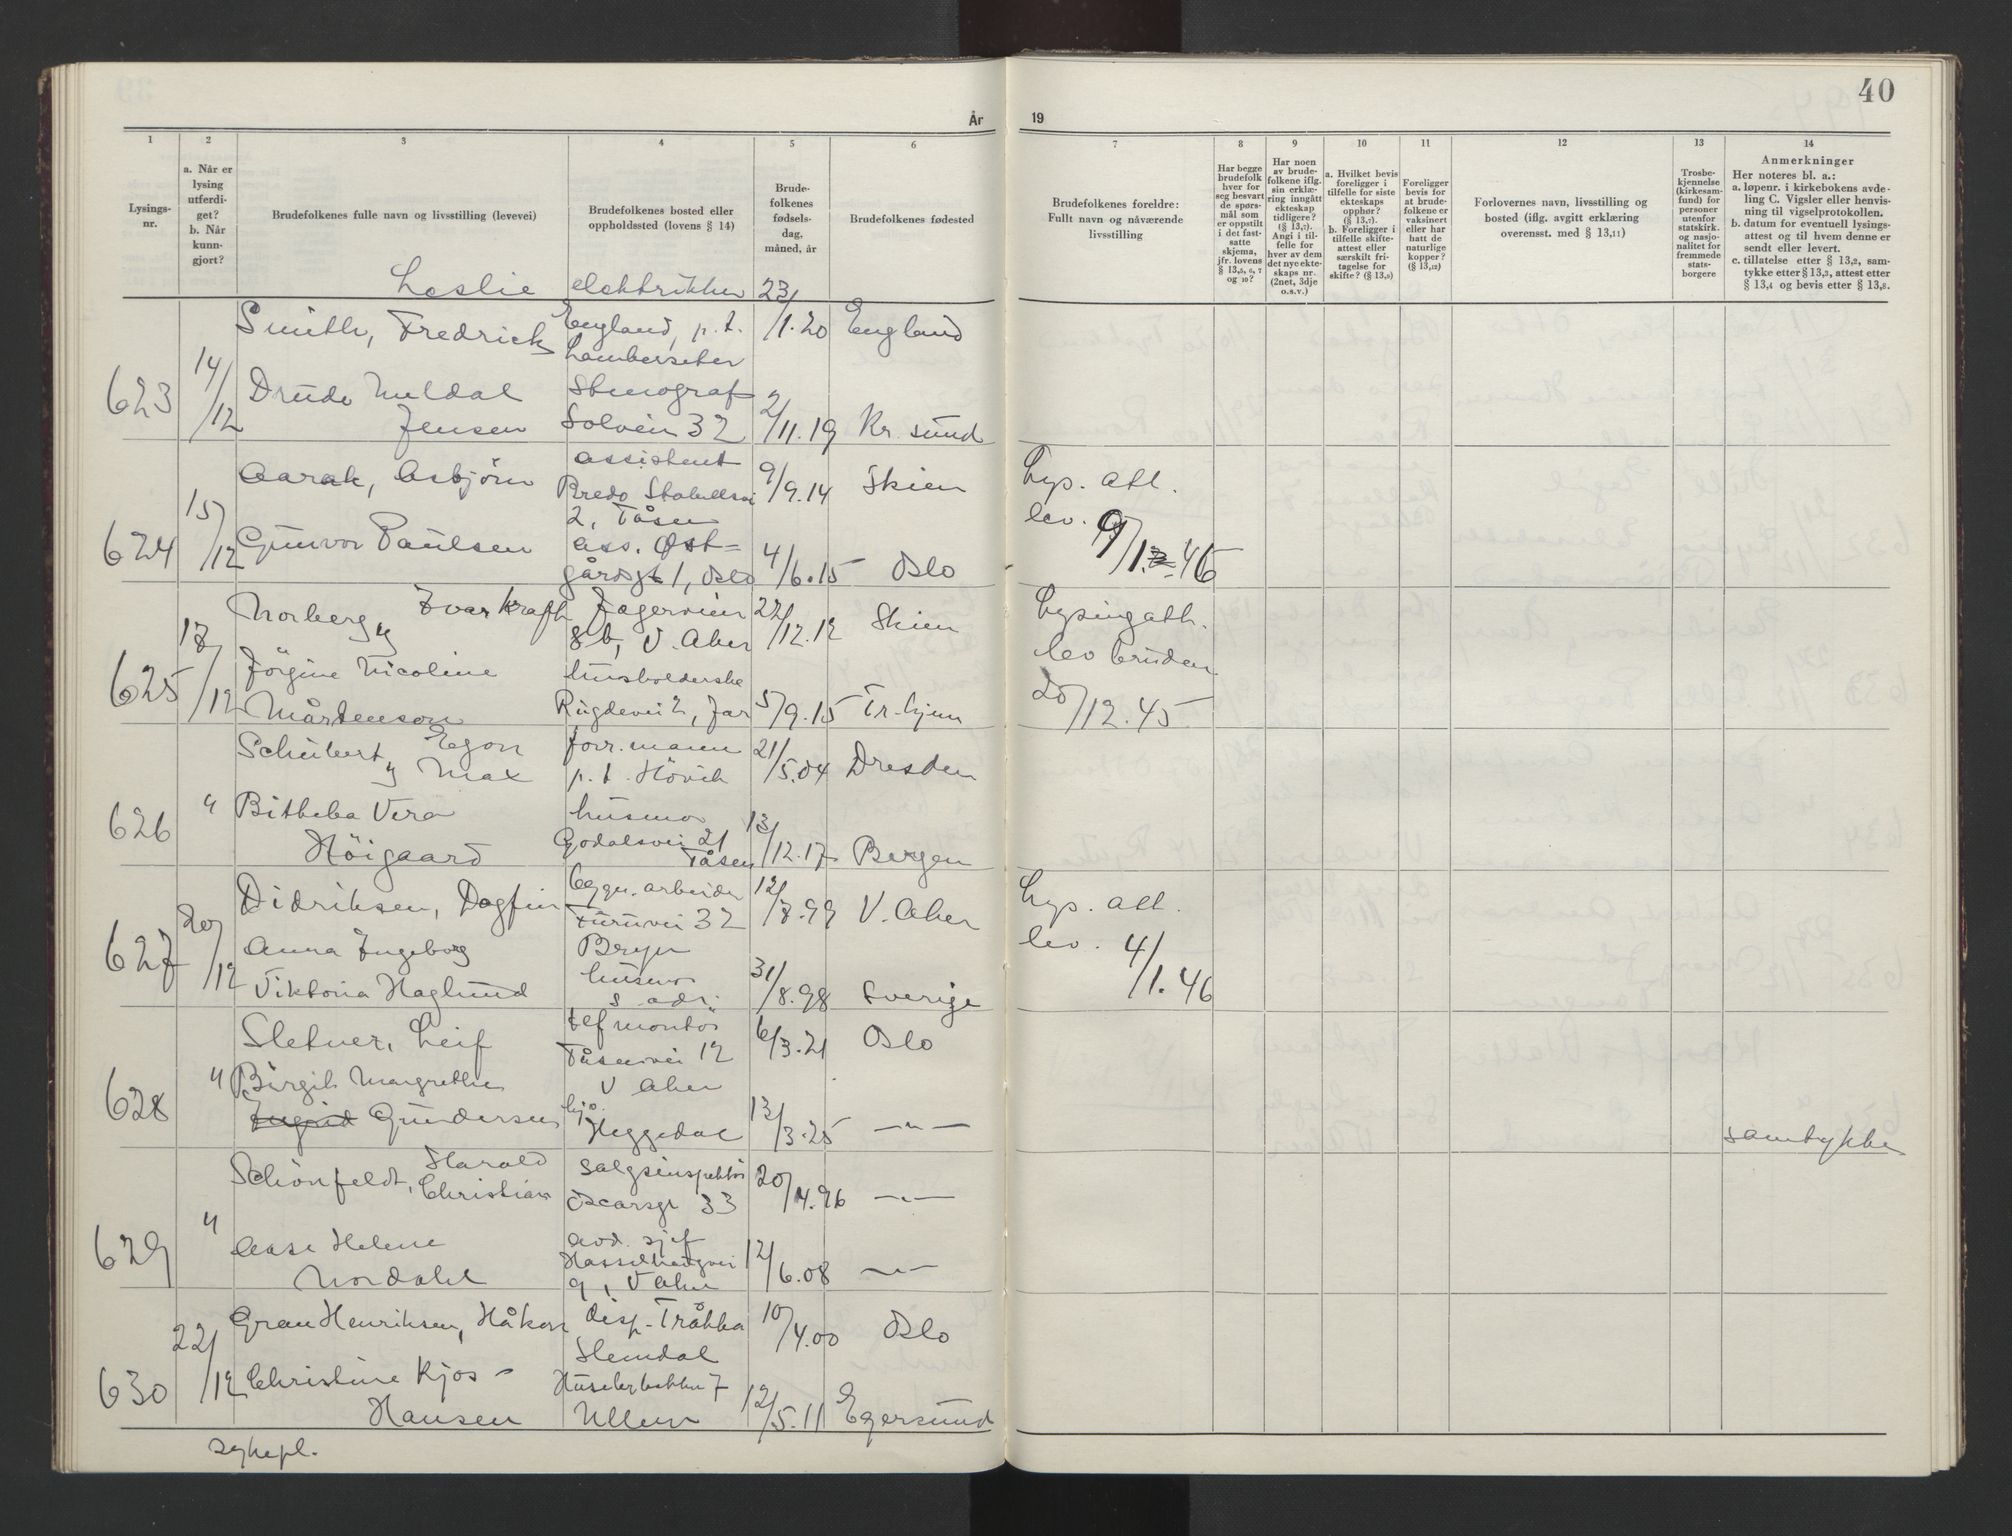 40
År
19
1
2
3
4
5
6
7
8
9
10
11
12
13
14
Lysings-
nr.
a. Når er
lysing
utferdi-
get?
b. Når
kunn-
gjort?
Brudefolkenes fulle navn og livsstilling (levevei)
Brudefolkenes bosted eller
oppholdssted (lovens § 14)
Brude-
folkenes
fødsels-
dag,
måned, år
Brudefolkenes fødested
Brudefolkenes foreldre:
Fullt navn og nåværende
livsstilling
Har begge
brudefolk
hver for
seg besvart
de spørs-
mål som
er oppstilt
i det fast-
satte
skjema,
jfr. lovens
§ 13,5, 6, 7
og 10?
Har noen
av brude-
folkene iflg.
sin erklæ-
ring inngått
ekteskap
tidligere?
(§ 13,7).
Angi i til-
felle for
hver av dem
det nye ekte-
skaps nr.
(2net, 3dje
o.s.v.)
a. Hvilket bevis
foreligger i
tilfelle for siste
ekteskaps
opphør?
(§ 13,7).
b. Foreligger i
tilfelle skifte-
attest eller
særskilt fri-
tagelse for
skifte? (§ 13,9)
Foreligger
bevis for
at brude-
folkene er
vaksinert
eller har
hatt de
naturlige
kopper?
(§ 13,12)
Forlovernes navn, livsstilling og
bosted (iflg. avgitt erklæring
overensst. med § 13,11)
Trosbe-
kjennelse
(kirkesam-
fund) for
personer
utenfor
statskirk.
og nasjo-
nalitet for
fremmede
stats-
borgere
Anmerkninger
Her noteres bl. a.:
a. løpenr. i kirkebokens avde-
ling C. Vigsler eller henvis-
ning til vigselprotokollen.
b. datum for eventuell lysings-
attest og til hvem denne er
sendt eller levert.
c. tillatelse etter § 13,2, sam-
tykke etter § 13,3, attest etter
§ 13,4 og bevis etter § 13,8.
Leslie elektriker 23/1.20
Smith, Fredrick England, p.t. England
Lambertseter
623 14/12 Drude Meldal stenograf 2/11.19
Jensen Solveien 32 Kr. sund
Aarak, Asbjørn assistent 9/9.14 Skien
Bredo Stabellsvei
2, Tåsen
624 15/12 Gunvor Paulsen ass. Øst- 4/6.15
gårdsgt 1, Oslo Oslo
Lys. att.
lev. 9/1. 46
Norberg, Ivar Kraft Jegerveien 22/12.12 Skien
8b, V. Aker
625 18/12 Jørgine Nicoline husholderske
Mårtenson Rugdevei 2, Jar 5/9.15 Tr.hjem
Lysingatt.
lev bruden
20/12.45
Schubert, Egon forr.mann 21/5.04 Dresden
Max p.t. Hövik
626 " Vera husmor
Höigaard Godalsvei 21 13/12.17 Bergen
Tåsen
Didriksen, Dagfinn bygn. arbeider 12/8.99 V. Aker
Furuvei 32
627 20/12 Anna Ingeborg Bryn
Viktoria Haglund husmor 31/8.98 Sverige
s adr.
Lys. att.
lev. 4/1.46
Sletner, Leif telf montör 6/3.21 Oslo
Tåsenvei 12
628 " Birgit Margrethe V Aker
Ingrid Gundersen Heggedal 13/3.25 —"—
samtykke
Schönfeldt, Harald salgsinspektör 20/4.96 —"—
Christian Oscarsgt 33
629 " Aase Helene avd. sjef
Nordahl Hasselhaugvei 12/6.08 —"—
9, V Aker
Gran Henriksen, Håkon disp. Tråkka 10/4.00 Oslo
Slemdal
630 22/12 Christine Kjos- Huseberbakken 7
Hansen Ullern 12/5.11 Egersund
sykepl.